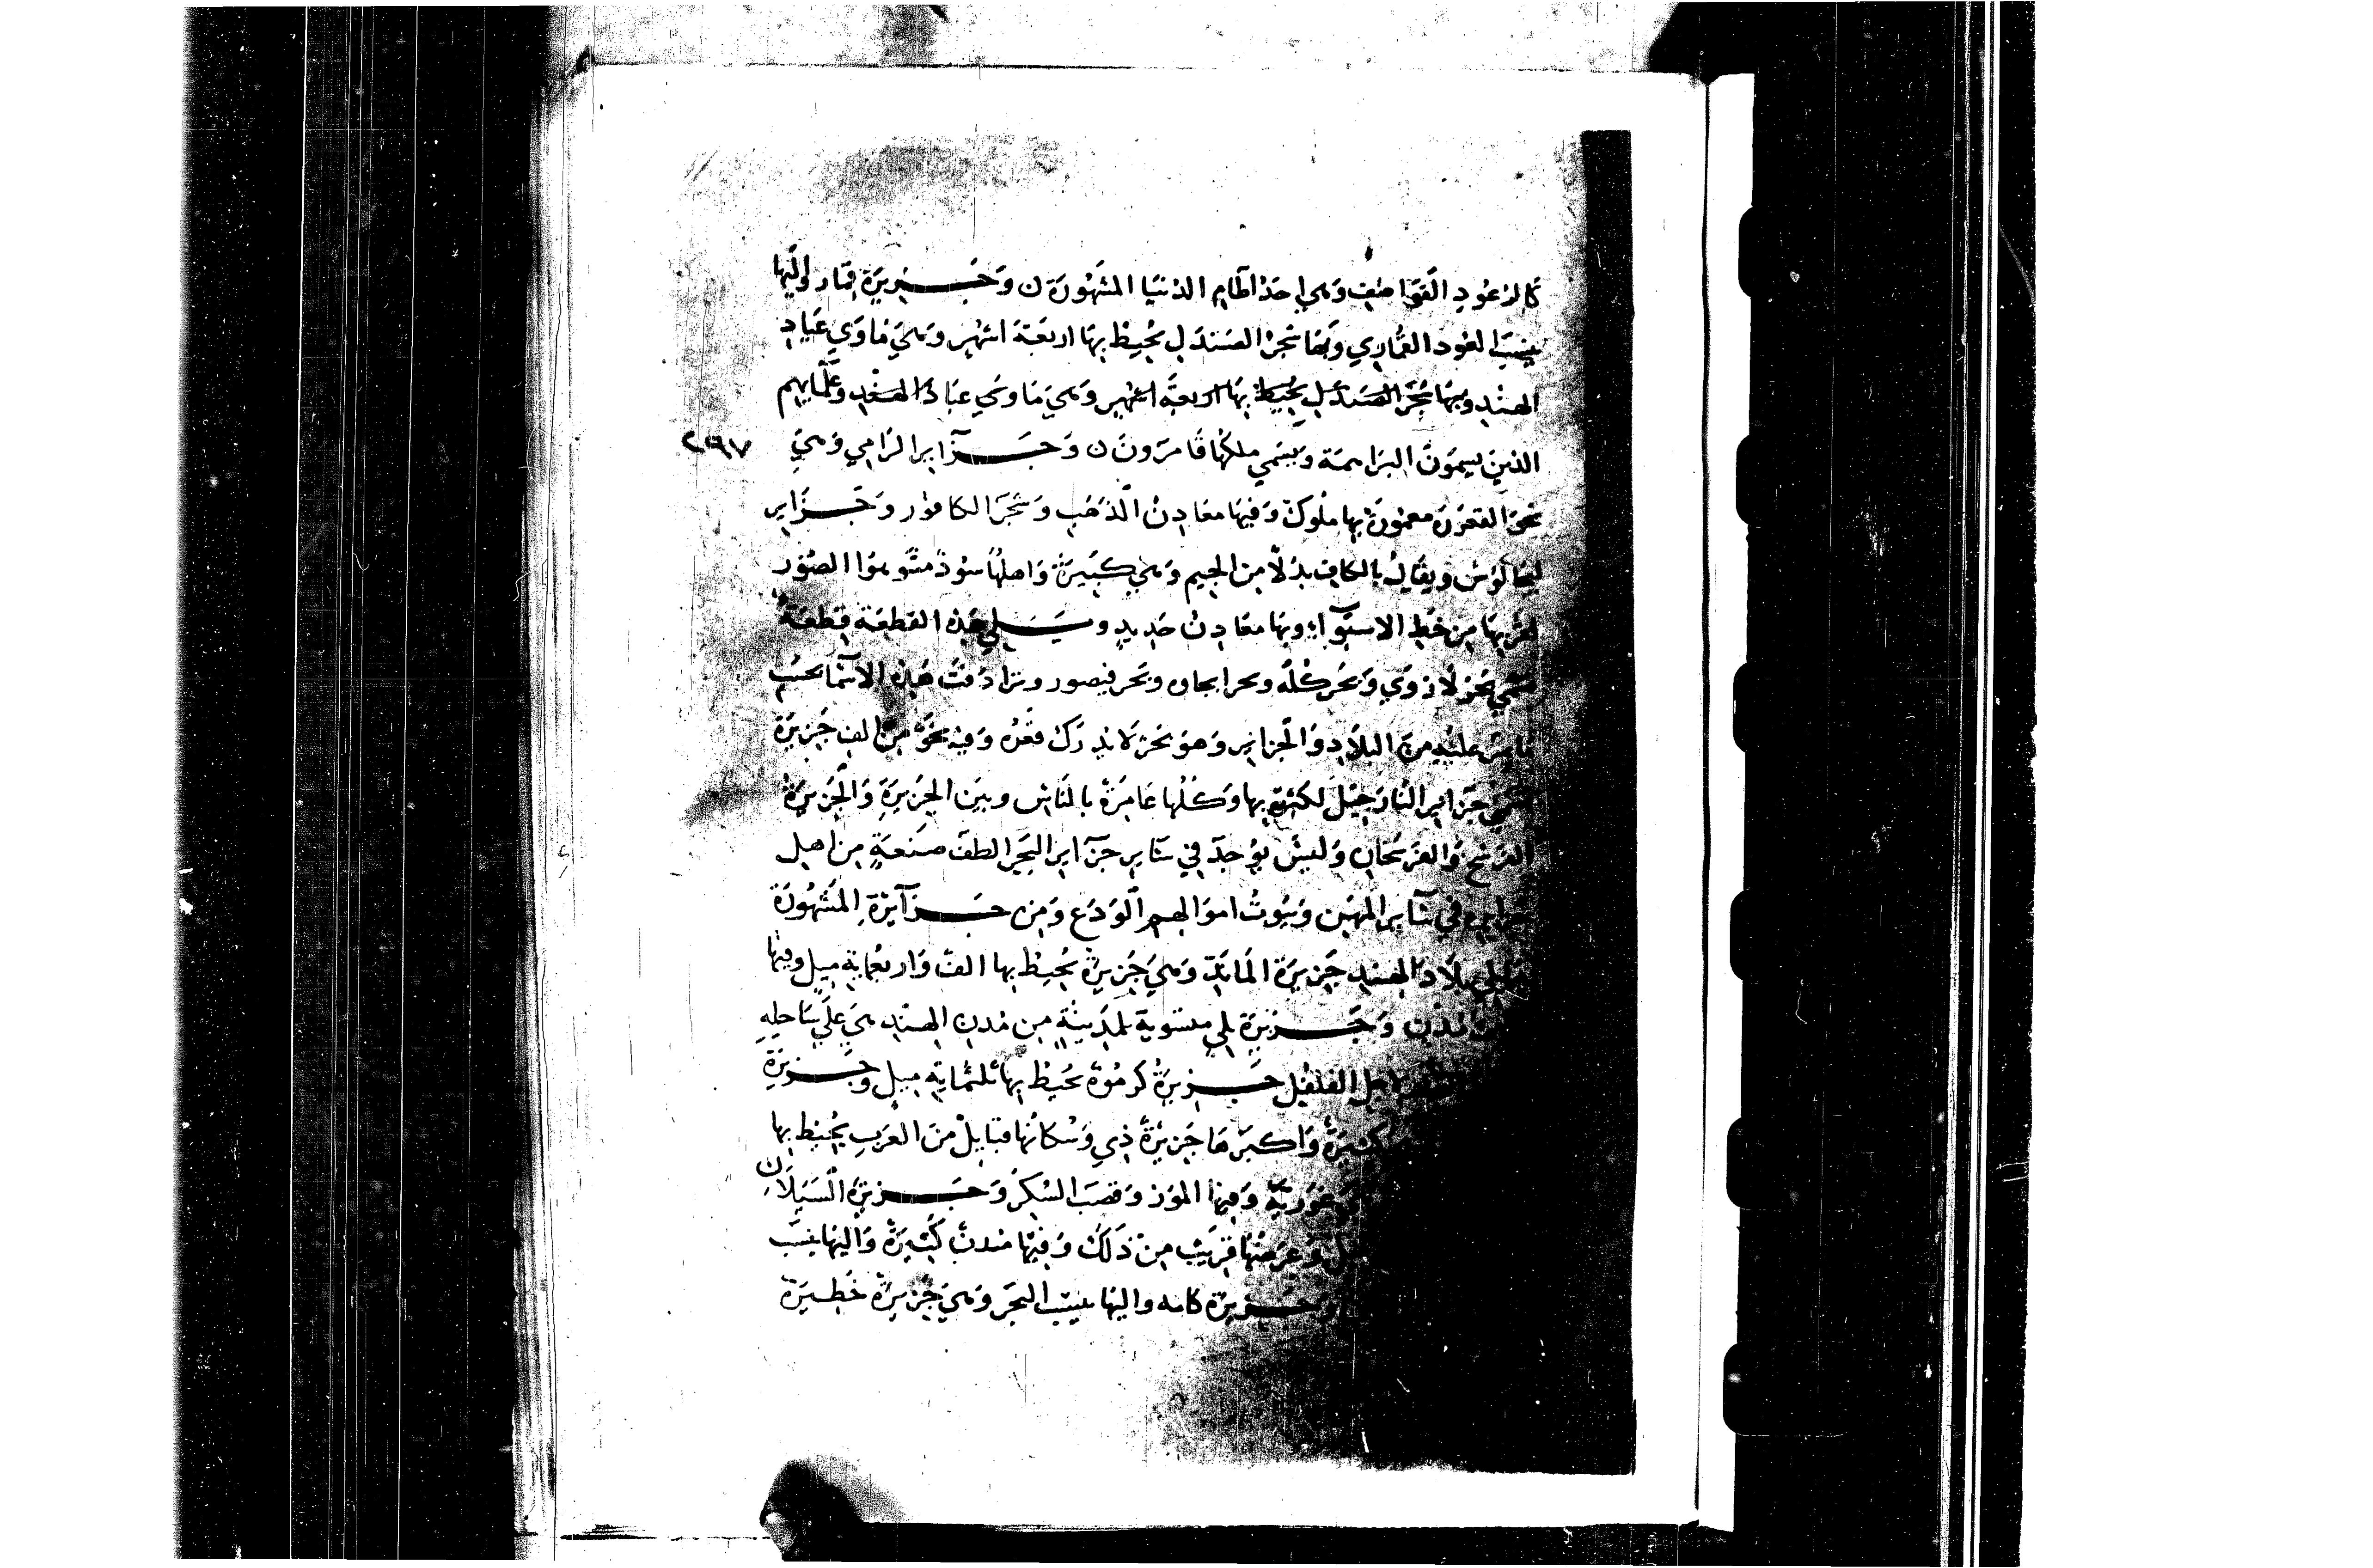 كالرعود القواصف وهي احد اطام الدنيا المشهورة ن وجزيرة قمار واليها
ينسب العود القماري وبها شجر الصندل يحيط بها اربعة اشهر وهي ماوي عباد
الهند وبها شجر الصندل يحيط بها اربعة اشهر وهي ماوي عباد الهند وعلمايهم
الذين يسمون البراهمة ويسمي ملكها قامرون ن وجزاير الرامي وهي
نحو العشرة معمورة بها ملوك وفيها معادن الذهب وشجر الكافور وجزاير
لنجالوس ويقال بالكاف بدلا من الجيم وهي كبيرة واهلها سود مشوهوا الصور
لقربها من خط الاستواء وبها معادن حديد ويلي هذه القطعة قطعة
تسمي بحر لاروي وبحر كله وبحر الجاوه وبحر فنصور وترادفت هذه الاسما بحسب
ما يمر عليه من البلاد والجزاير وهو بحر لا يدرك قعره وفيه نحو من الف جزيرة
تسمي جزاير النارجيل لكثرته بها وكلها عامرة بالناس وبين الجزيرة والجزيرة
الفرسخ والفرسخان وليس يوجد في ساير جزاير البحر الطف صنعة من اهل
جزايره في ساير المهن وبيوت اموالهم الودع ومن جزايره المشهورة
بلاد الهند جزيرة المانك وهي جزيرة يحيط بها الف واربعماية ميل وفيها
مدن وجزيرة بلي منسوبة لمدينة من مدن الهند هي علي ساحله
الفلفل جزيرة كرموه يحيط بها ثلثماية ميل وجزيرة
كثيرة واكبرها جزيرة ذي وسكانها قبايل من العرب يحيط بها
وفيها الموز وقصب السكر وجزيرة السيلان
وعرضها قريب من ذلك وفيها مدن كثيرة واليها ينسب
وجزيرة كله واليها ينسب البحر وهي جزيرة خطيرة
٢٩٧